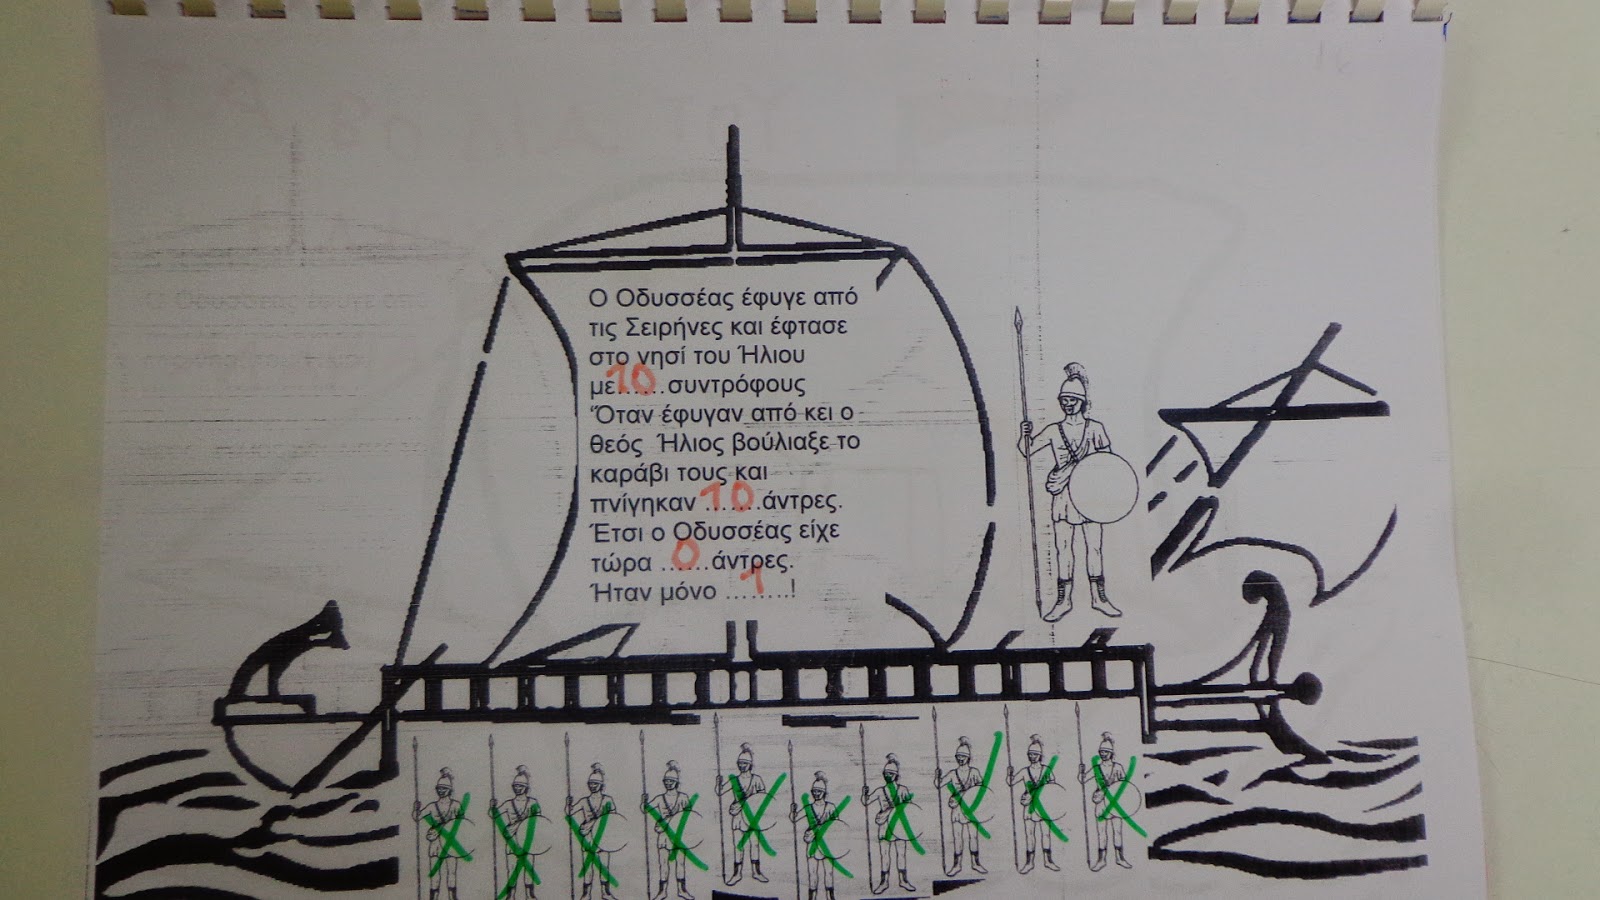 Ο Οδυσσέας έφυγε από
τις Σειρήνες και έφτασε
στο νησί του Ήλιου
με 10 συντρόφους
Όταν έφυγαν από κει ο
θεός Ήλιος βούλιαξε το
καράβι τους και
πνίγηκαν 10 άντρες.
Έτσι ο Οδυσσέας είχε
τώρα 0 άντρες.
Ήταν μόνο 1!